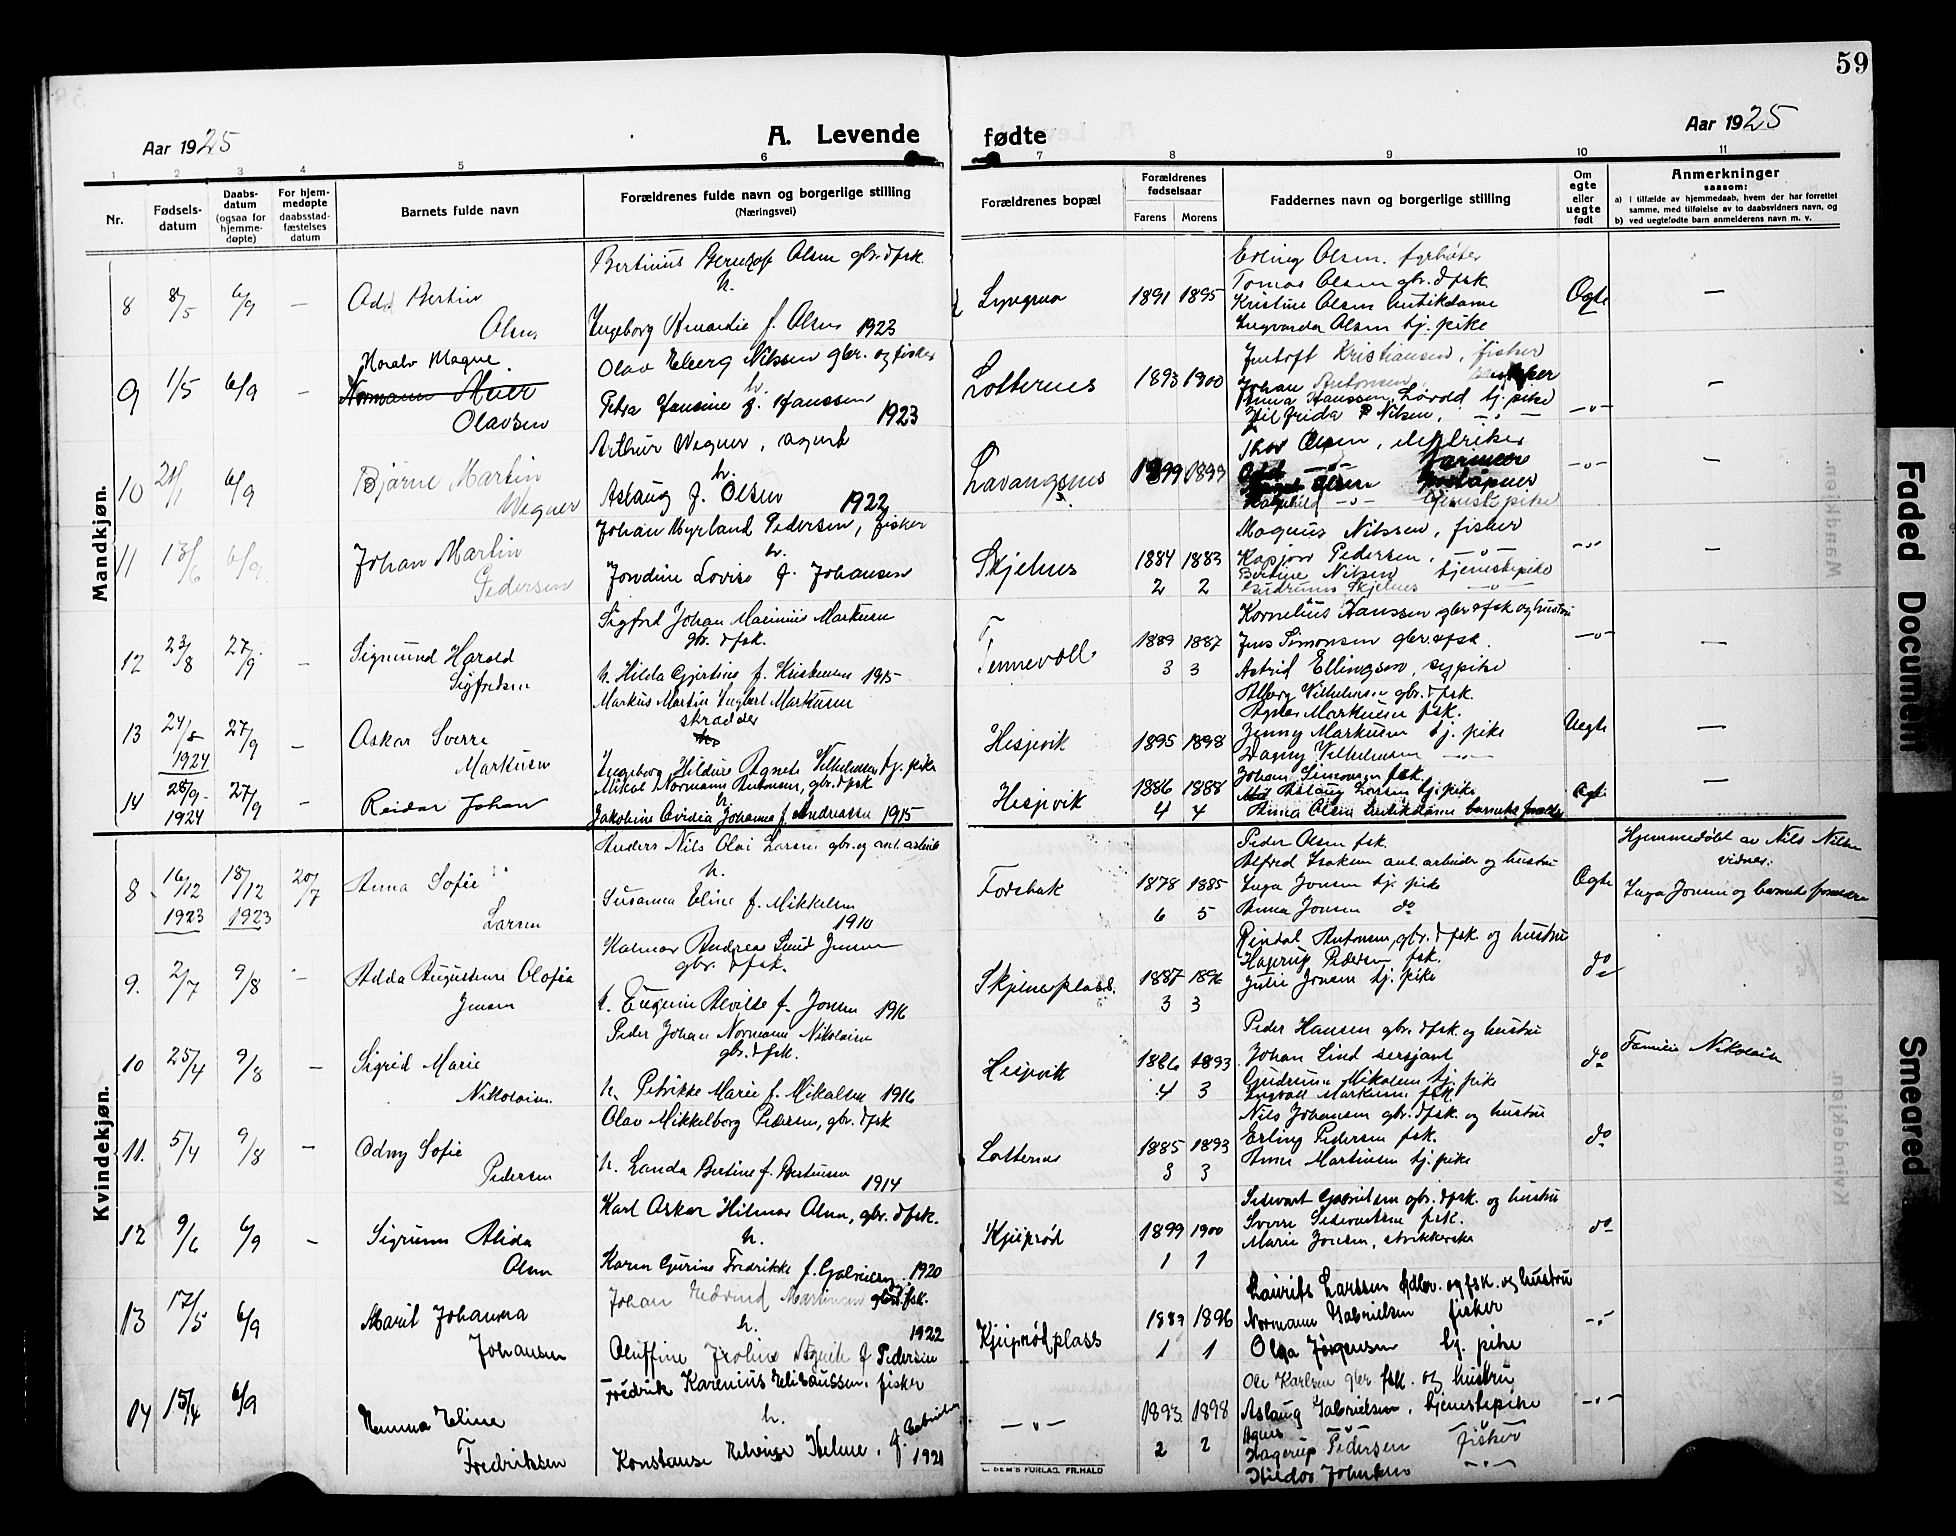 59
Aar 1925
A. Levende fødte
Aar 1925
1 2 3 4 5 6 7 8 9 10 11
Nr.
Fødsels-datum
Daabs-datum (ogsaa for hjemme-døpte)
For hjem-medøpte daabsstad-fæstelses datum
Barnets fulde navn
Forældrenes fulde navn og borgerlige stilling (Næringsvei)
Forældrenes bopæl
Forældrenes fødselsaar
Farens Morens
Faddernes navn og borgerlige stilling
Om egte eller uegte født
Anmerkninger
saasom:
a) i tilfælde av hjemmedaab, hvem der har forrettet samme, med tilføielse av to daabsvidners navn, og
b) ved uegtefødte barn anmelderens navn m. v.
Mandkjøn.
8 8/5 6/9 —
Odd Bertin
Olsen
Bertinius Olsen gbr. & fsk.
h.
Ingeborg f. Olsen 1923
1891 1895
Erling Olsen
Tomas Olsen gbr. & fsk.
Kristine Olsen butikdame
Ingvarda Olsen tj. pike
Ægte
—
9 1/5 6/9 —
Harald Magne
Normann
Olavsen
Olav Nilssen gbr. og fisker
h.
Petra Jansine f. Hanssen
1923
Lotternes
1893 1900
Kristiansen, fisker
Johan Antonsen
Anna Hanssen, tj. pike
Nilsen, — " —
— " —
—
10 6/9
Bjarne Martin
Wegner
Arthur Wegner, agent
h.
Aslaug f. Olsen 1922
Lavangsnes
1899 1899
Thor Olsen,
Olsen
tjenestepike
— " —
—
11 13/6 6/9
Johan Martin
Pedersen
Johan Myrland Pedersen, fisker
h.
Jondine Lovise f. Johansen
Skjelnes
1884 1883
2 2
Magnus Nilssen, fisker
Pedersen, — " —
Bertine Nilsen tjenestepike
Skjelnes — " —
— " —
—
12 23/8 27/9 —
Sigmund Harald
Sigfredsen
Sigfred Johan Markusen
gbr. & fsk.
h. Hilda Gjertine f. Kristensen 1915
Tennevoll
1889 1887
3 3
Kornelius Hanssen gbr & fsk og hustru
Jens Simonsen gbr. & fsk.
Astrid Ellingsen, sypike
Vilhelmsen gbr. & fsk.
— " —
—
13 24/8 1924 27/9 —
Oskar Sverre
Markusen
Markus Martin Markusen
skrædder
Ingeborg Hildur Agnete Vilhelmsen tj. pike
Hesjevik
1895 1898
Agnar Markusen fsk.
Jenny Markusen tj. pike
Dagny Vilhelmsen — " —
Uegte
—
14 28/9 1924 27/9 —
Reidar Johan
Mikal Normann Antonsen, gbr. & fsk
h.
Jakobine Ovidia Johanna f. Andreassen 1915
Hesjevik
1886 1888
4 4
Johan Simonsen fsk.
Aslaug Larsen tj. pike
Anna Olsen butikdame barnets forældre
Ægte
—
Kvindekjøn.
8 16/12 1923 18/12 1923 20/7
Anna Sofie
Larsen
Anders Nils Olai Larsen gbr. og anl. arbeid
h.
Susanna Eline f. Mikkelsen
1910
Forsbak
1878 1885
6 5
Peder Olsen fsk.
Alfred Isaksen anl. arbeider og hustru
Inga Jensen tj. pike
Anna Jensen do
Ægte
Hjemmedøbt av Nils Nilsen
vidner:
Inga Jensen og barnets forældre
9. 2/7 9/8 —
Adda Augustine Olofia
Jensen
Halmar Andreas Lund Jensen
gbr. & fsk.
h. Eugenie Alvilde f. Jensen 1916
Skjelnesplass.
1887 1896
3 3
Rindal Antonsen, gbr. & fsk. og hustru
Hagerup Pedersen fsk.
Julie Jensen tj. pike
do
10 25/4 9/8 —
Sigrid Marie
Nikolaisen
Peder Johan Normann Nikolaisen
gbr. & fsk.
h. Petrikke Marie f. Mikalsen 1916
Hesjevik
1886 1893
4 3
Peder Hansen gbr. & fsk. og hustru
Johan Lind sersjant
Gudrun Mikalsen tj. pike
Ingvald Markusen fsk.
do
Familie Nikolaisen
11. 5/4 9/8 —
Odny Sofie
Pedersen
Olav Mikkelborg Pedersen, gbr. & fsk
h. Landa Bertine f. Bertinsen
1914
Lotternes
1885 1893
3 3
Nils Johansen gbr. & fsk. og hustru
Erling Pedersen fsk.
Anna Martinsen tj. pike
do
12 9/6 6/9 —
Sigrunn Alida
Olsen
Karl Oskar Hilmar Olsen, gbr. & fsk.
h.
Karen Gurine Fredrikke f. Gabrielsen 1920
Kjeiprød
1899 1900
1 1
Sedevart Gabrielsen gbr. & fsk. og hustru
Sverre Sedevartsen fsk.
Marie Jensen, strikkerske
do
13 17/5 6/9
Marit Johanna
Johansen
Johan Edvind Martinsen gbr. & fsk.
h.
1922
Oluffine f. Pedersen
Kjeiprødplass
1889 1896
1 1
Laurits Larssen gbr. og fsk. og hustru
Normann Gabrielsen fisker
Olga Jørgensen tj. pike
— " —
14 15/4 6/9
Hemma Eline
Fredriksen
Fredrik Karenius Eliassen, fisker
h.
Konstanse Helmine, f. Gabrielsen
1921
— " —
1893 1898
2 2
Ole Karlsen gbr fsk. og hustru
Aslaug Gabrielsen, tjenestepike
Agnes
Hagerup Pedersen fisker
Hildor Johansen — " —
— " —
FORLAG, FR. HALD
Faded Document
Smeared